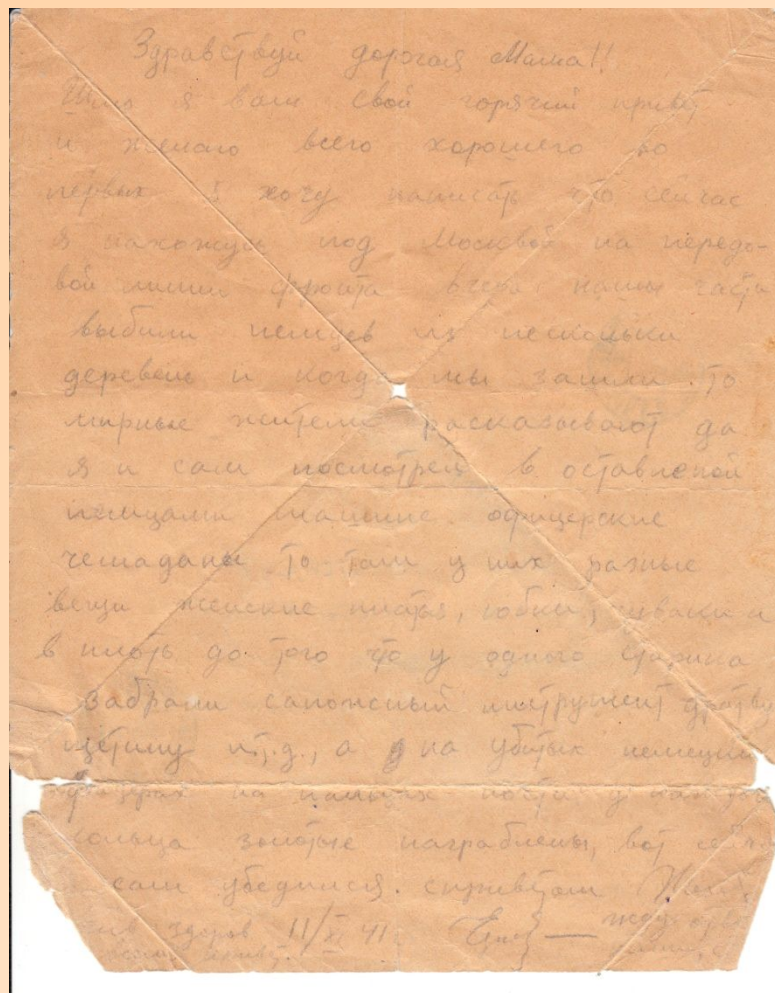 Здравствуй дорогая Мама!!
Шлю я вам свой горячий привет
и желаю всего хорошего во
первых я хочу написать что сейчас
я нахожусь под Москвой на передо-
вой линии фронта вчера наши части
выбили немцев из несколька
деревень и когда мы зашли то
мирные жители расказывают да
я и сам посмотрел в оставленой
немцами машине офицерские
чемаданы то там у них разные
вещи женские платья, юбки, и
в плоть до того что у одного старика
забрали сапожный инструмент дратву
щетину и т.д., а на убитых немецких
на пальцах почти у
кольца золотые награблены, вот
сам убедился. с приветом
здоров 11/XI 41. жду
привет.